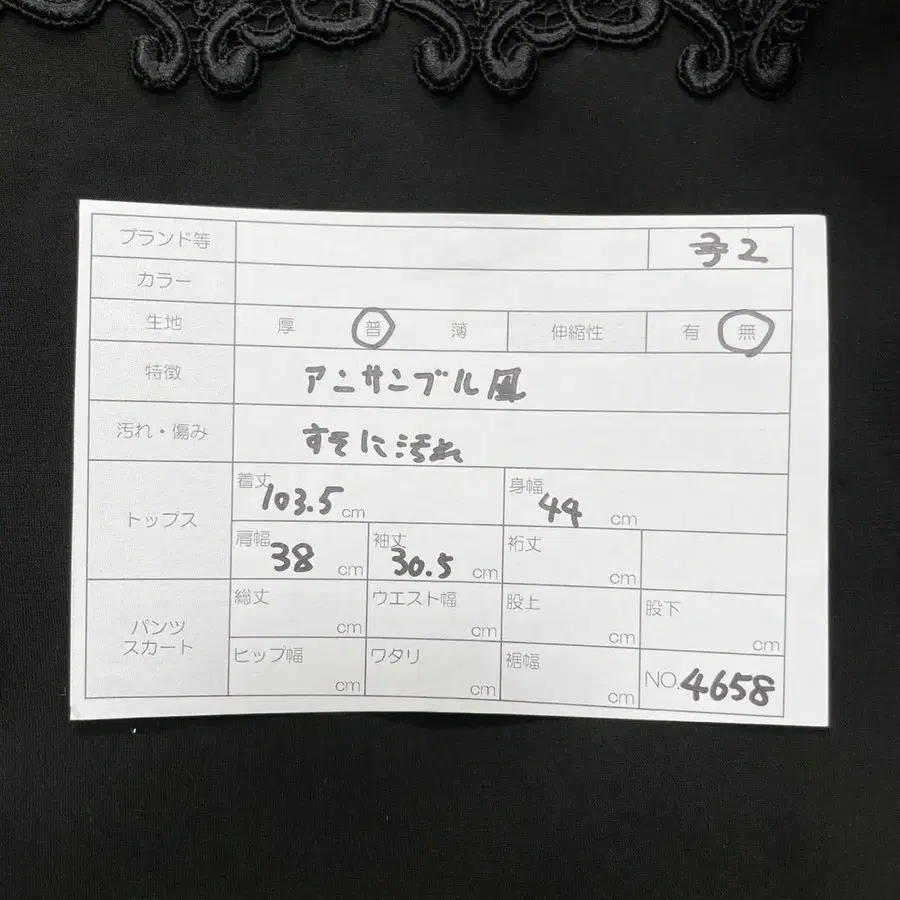 ブランド等 2
カラー
生地 厚 普 薄 伸縮性 有 無
特徴 アンサンブル風
汚れ・傷み すそに汚れ
トップス 着丈 103.5 cm 身幅 44 cm
肩幅 38 cm 袖丈 30.5 cm 裄丈 cm
パンツ スカート 総丈 cm ウエスト幅 cm 股上 cm 股下 cm
ヒップ幅 cm ワタリ cm 裾幅 cm NO. 4658